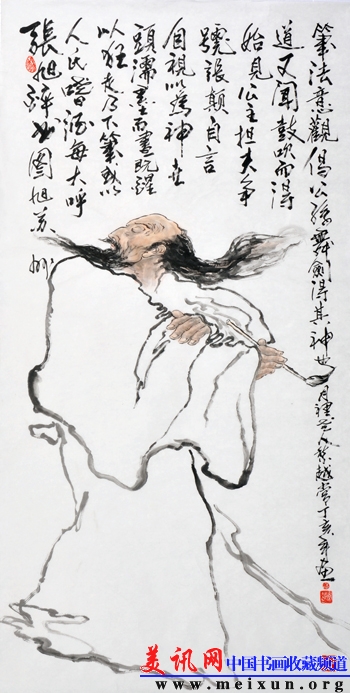 張旭醉書圖旭蘇州
人氏嗜酒每大呼
以狂走乃下筆或以
頭濡墨而書既醒
自視以為神世
號張顛自言
始見公主担夫爭
道又聞鼓吹而得
筆法意觀倡公孫舞劍得其神也
丁亥年畫
美讯网
中国书画收藏频道
www.meixun.org